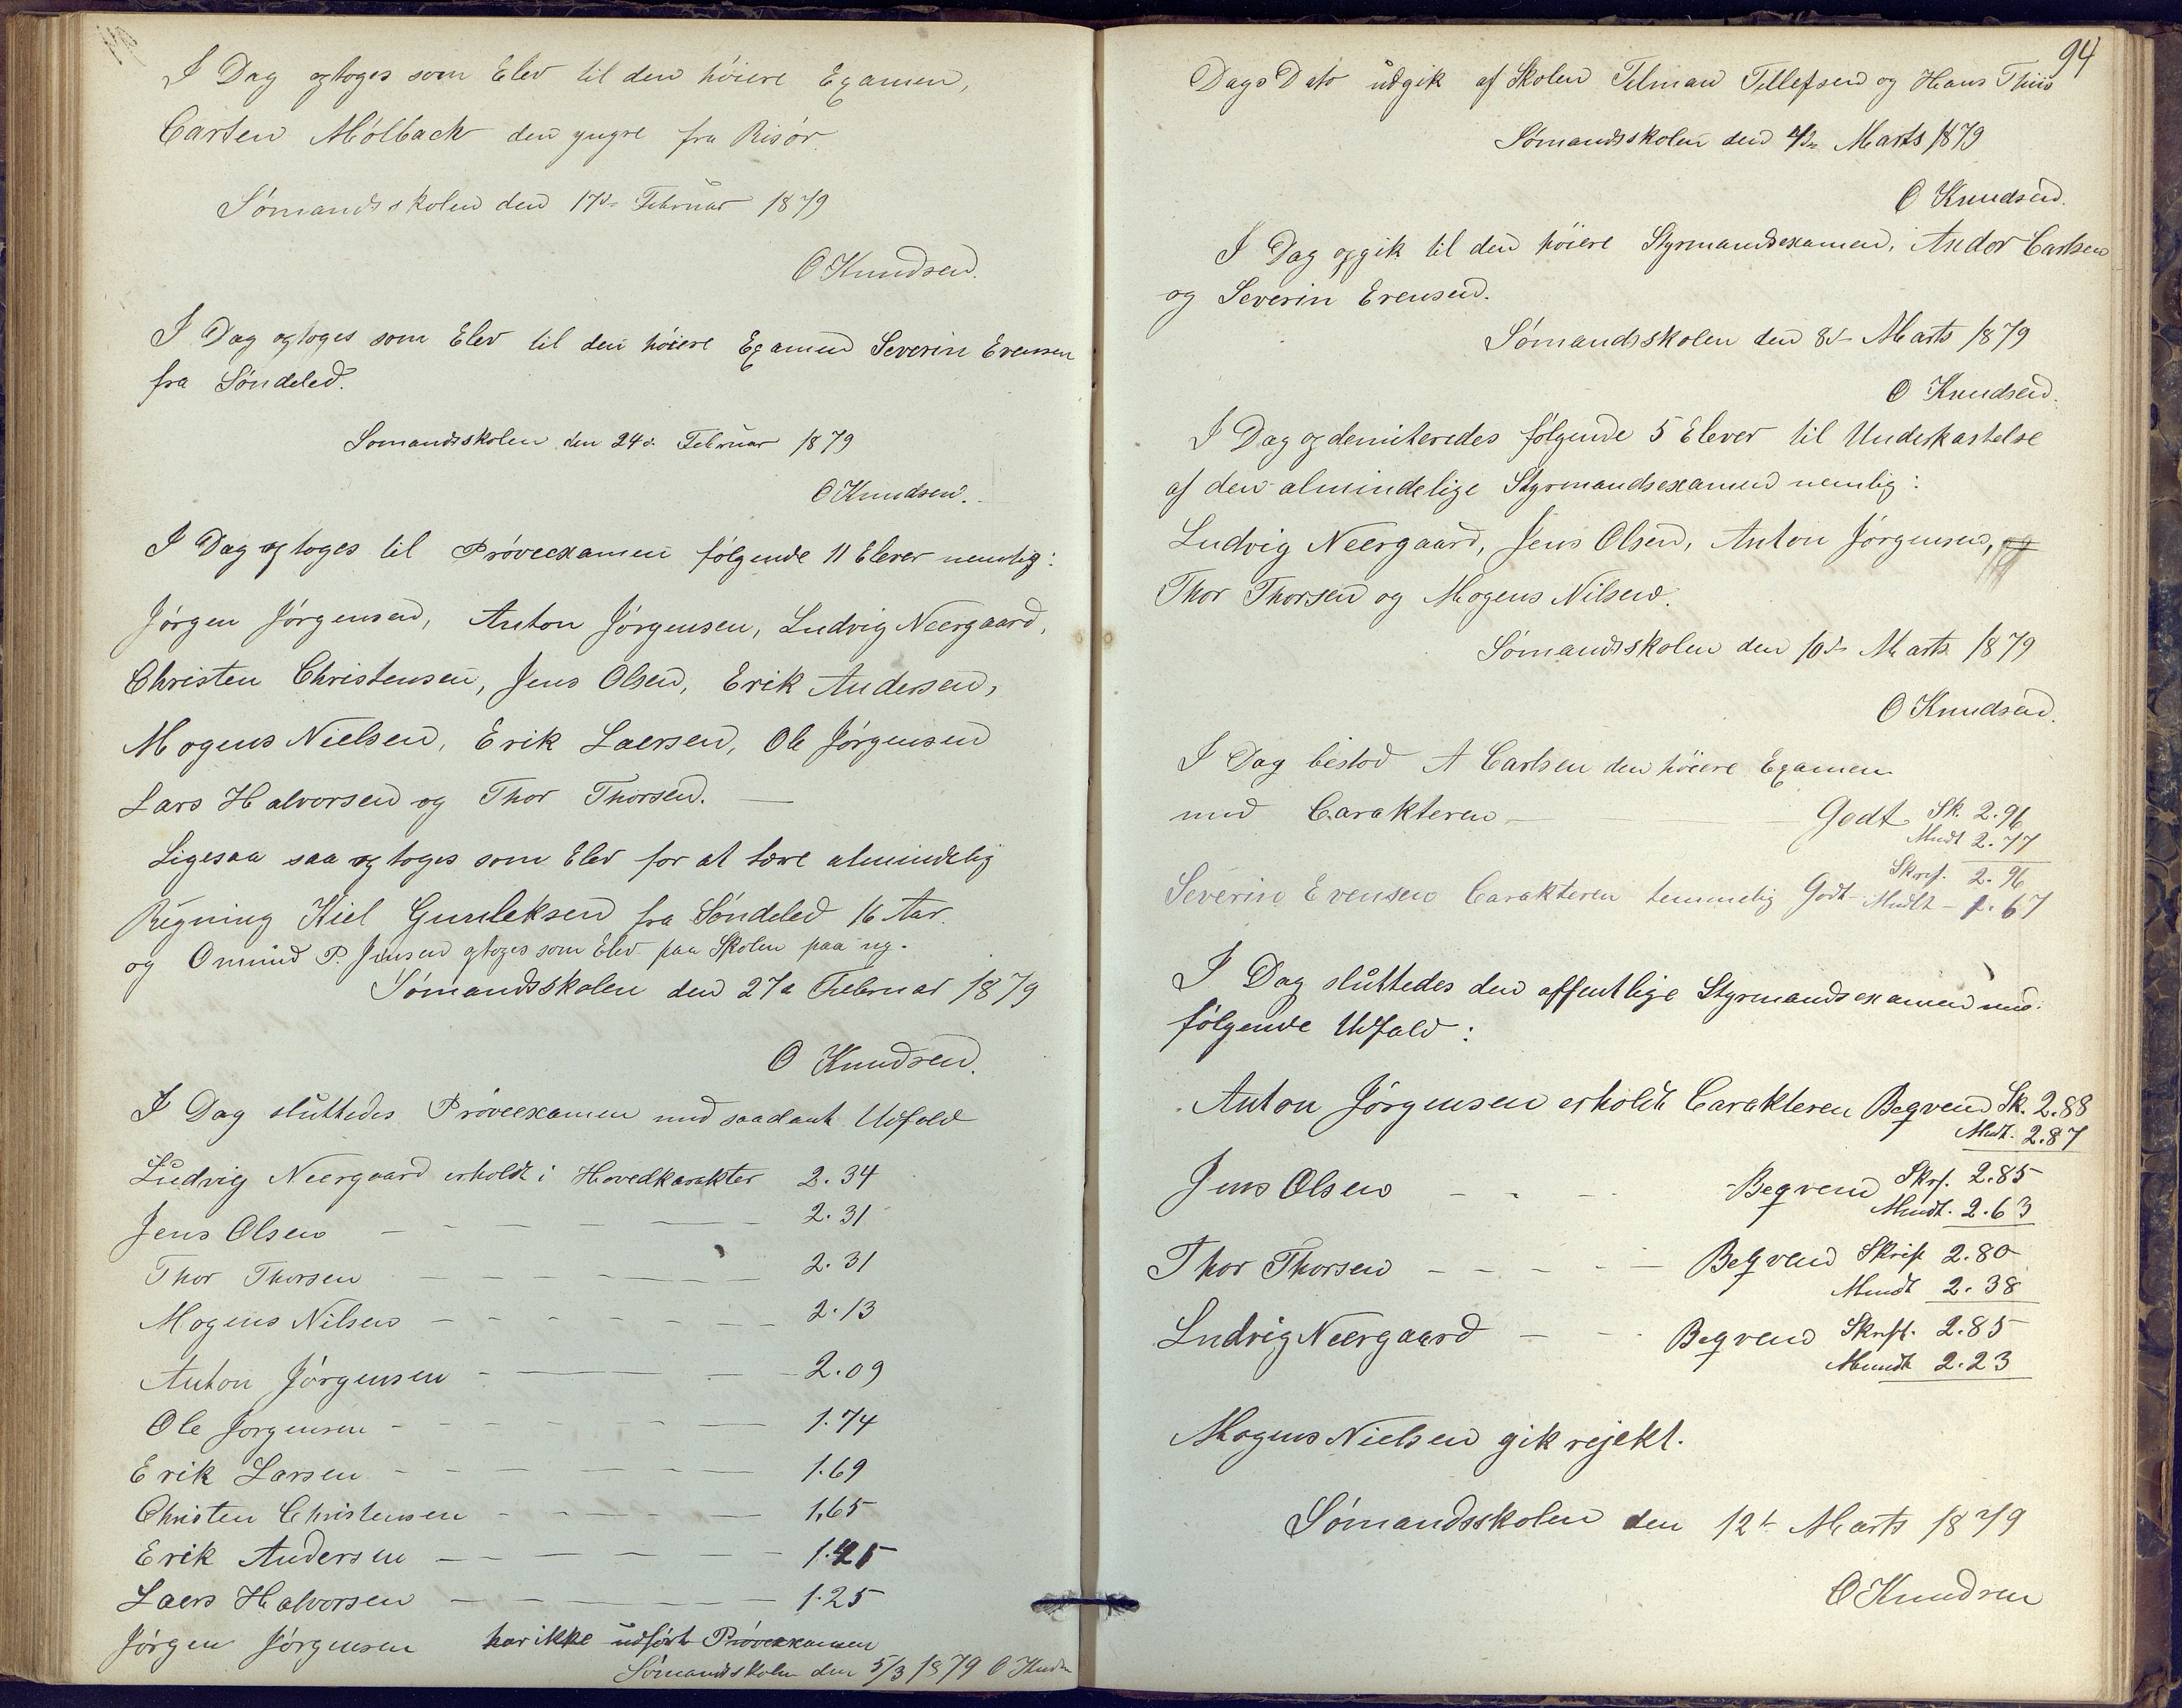 I Dag optoges som Elev til den höiere Examen,
Carsten Mölback den yngre fra Risör.
Sömandsskolen den 17de Februar 1879
O Knudsen.
I Dag optoges som Elev til den höiere Examen Severin Evensen
fra Söndeled.
Sömandsskolen den 24de Februar 1879
O Knudsen.
I Dag optoges til Pröveexamen fölgende 11 Elever nemlig:
Jörgen Jörgensen, Anton Jörgensen, Ludvig Neergaard,
Christen Christensen, Jens Olsen, Erik Andersen,
Mogens Nielsen, Erik Laersen, Ole Jörgensen
Lars Halvorsen og Thor Thorsen. —
Ligesaa saa optoges som Elev for at lære almindelig
Regning Kiel Gunleksen fra Söndeled 16 Aar.
og Omund P. Jensen optoges som Elev paa Skolen paa ny.
Sömandsskolen den 27de Februar 1879
O Knudsen.
I Dag sluttedes Pröveexamen med saadant Udfald
Ludvig Neergaard erholdt i Hovedkarakter 2.34
Jens Olsen — — — — — — 2.31
Thor Thorsen — — — — — — 2.31
Mogens Nilsen — — — — — — 2.13
Anton Jörgensen — — — — 2.09
Ole Jörgensen — — — — — — 1.74
Erik Larsen — — — — — — 1.69
Christen Christensen — — — — — 1.65
Erik Andersen — — — — — — 1.45
Laers Halvorsen — — — — — — 1.25
Jörgen Jörgensen har ikke udfört Pröveexamen
Sömandsskolen den 5/3 1879 O Knudsen
94
Dags Dato udgik af Skolen Tilman Tellefsen og Hans Thiis
Sömandsskolen den 4de Marts 1879
O Knudsen.
I Dag opgik til den höiere Styrmandsexamen, Andor Carlsen
og Severin Evensen.
Sömandsskolen den 8de Marts 1879
O Knudsen.
I Dag opdemiteredes fölgende 5 Elever til Underkastelse
af den almindelige Styrmandsexamen nemlig:
Ludvig Neergaard, Jens Olsen, Anton Jörgensen, og
Thor Thorsen og Mogens Nilsen.
Sömandsskolen den 10de Marts 1879
O Knudsen.
I Dag bestod A Carlsen den höiere Examen
med Carakteren — Godt Sk. 2.96
Mundt 2.77
Severin Evensen Carakteren temmelig Godt Skrf. 2.96
Mudt — 1.67
I Dag sluttedes den offentlige Styrmandsexamen med
fölgende Udfald:
Anton Jörgensen erholdt Carakteren Beqvem Sk. 2.88
Mudt. 2.87
Jens Olsen — — — Beqvem Skrf. 2.85
Mundt. 2.63
Thor Thorsen — — — — — Beqvem Skrift 2.80
Mundt 2.38
Ludvig Neergaard — — Beqvem Skrift. 2.85
Mundt 2.23
Mogens Nielsen gik rejekt.
Sömandsskolen den 12te Marts 1879
O Knudsen